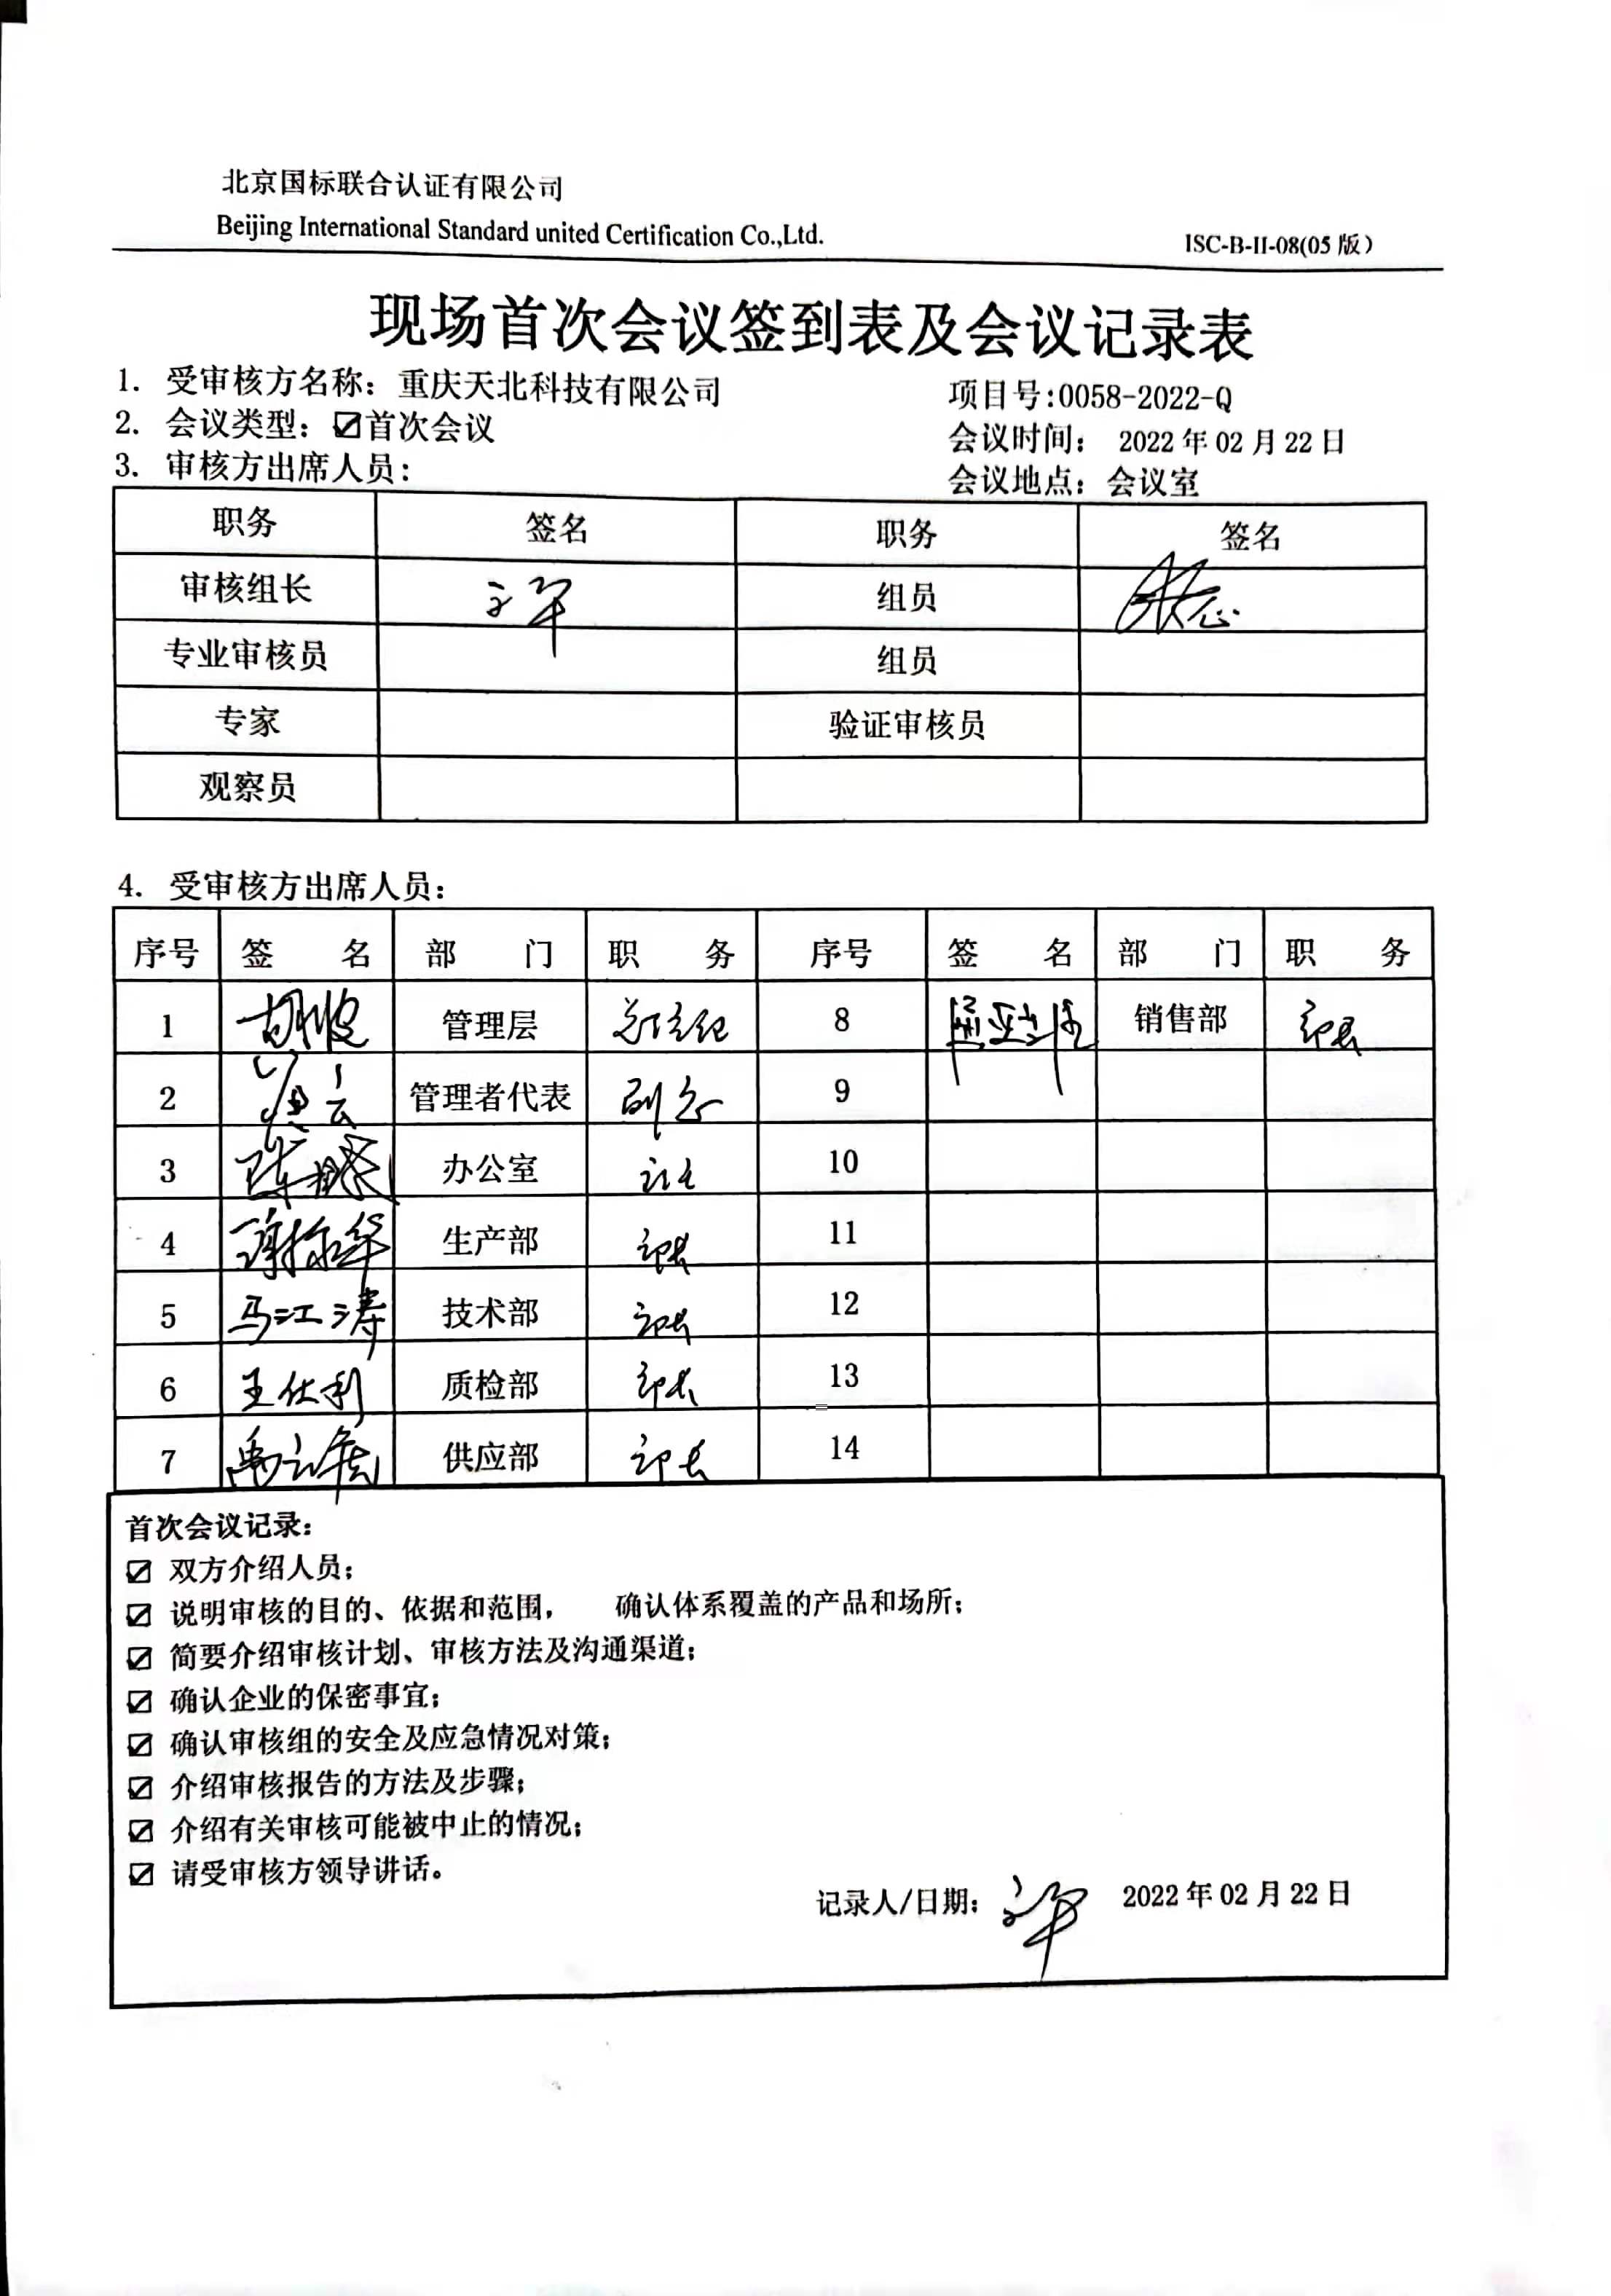 北京国标联合认证有限公司
Beijing International Standard united Certification Co.,Ltd.
ISC-B-II-08(05 版)
现场首次会议签到表及会议记录表
1. 受审核方名称：重庆天北科技有限公司 项目号:0058-2022-Q
2. 会议类型：☑首次会议 会议时间： 2022 年 02 月 22 日
3. 审核方出席人员： 会议地点：会议室
职务 签名 职务 签名
审核组长 组员
专业审核员 组员
专家 验证审核员
观察员
4. 受审核方出席人员：
序号 签 名 部 门 职 务 序号 签 名 部 门 职 务
1 胡俊 管理层 总经理 8 销售部 部长
2 管理者代表 副总 9
3 办公室 主任 10
4 生产部 部长 11
5 马江涛 技术部 部长 12
6 王仕利 质检部 部长 13
7 供应部 部长 14
首次会议记录：
☑ 双方介绍人员；
☑ 说明审核的目的、依据和范围， 确认体系覆盖的产品和场所；
☑ 简要介绍审核计划、审核方法及沟通渠道；
☑ 确认企业的保密事宜；
☑ 确认审核组的安全及应急情况对策；
☑ 介绍审核报告的方法及步骤；
☑ 介绍有关审核可能被中止的情况；
☑ 请受审核方领导讲话。
记录人/日期： 2022 年 02 月 22 日